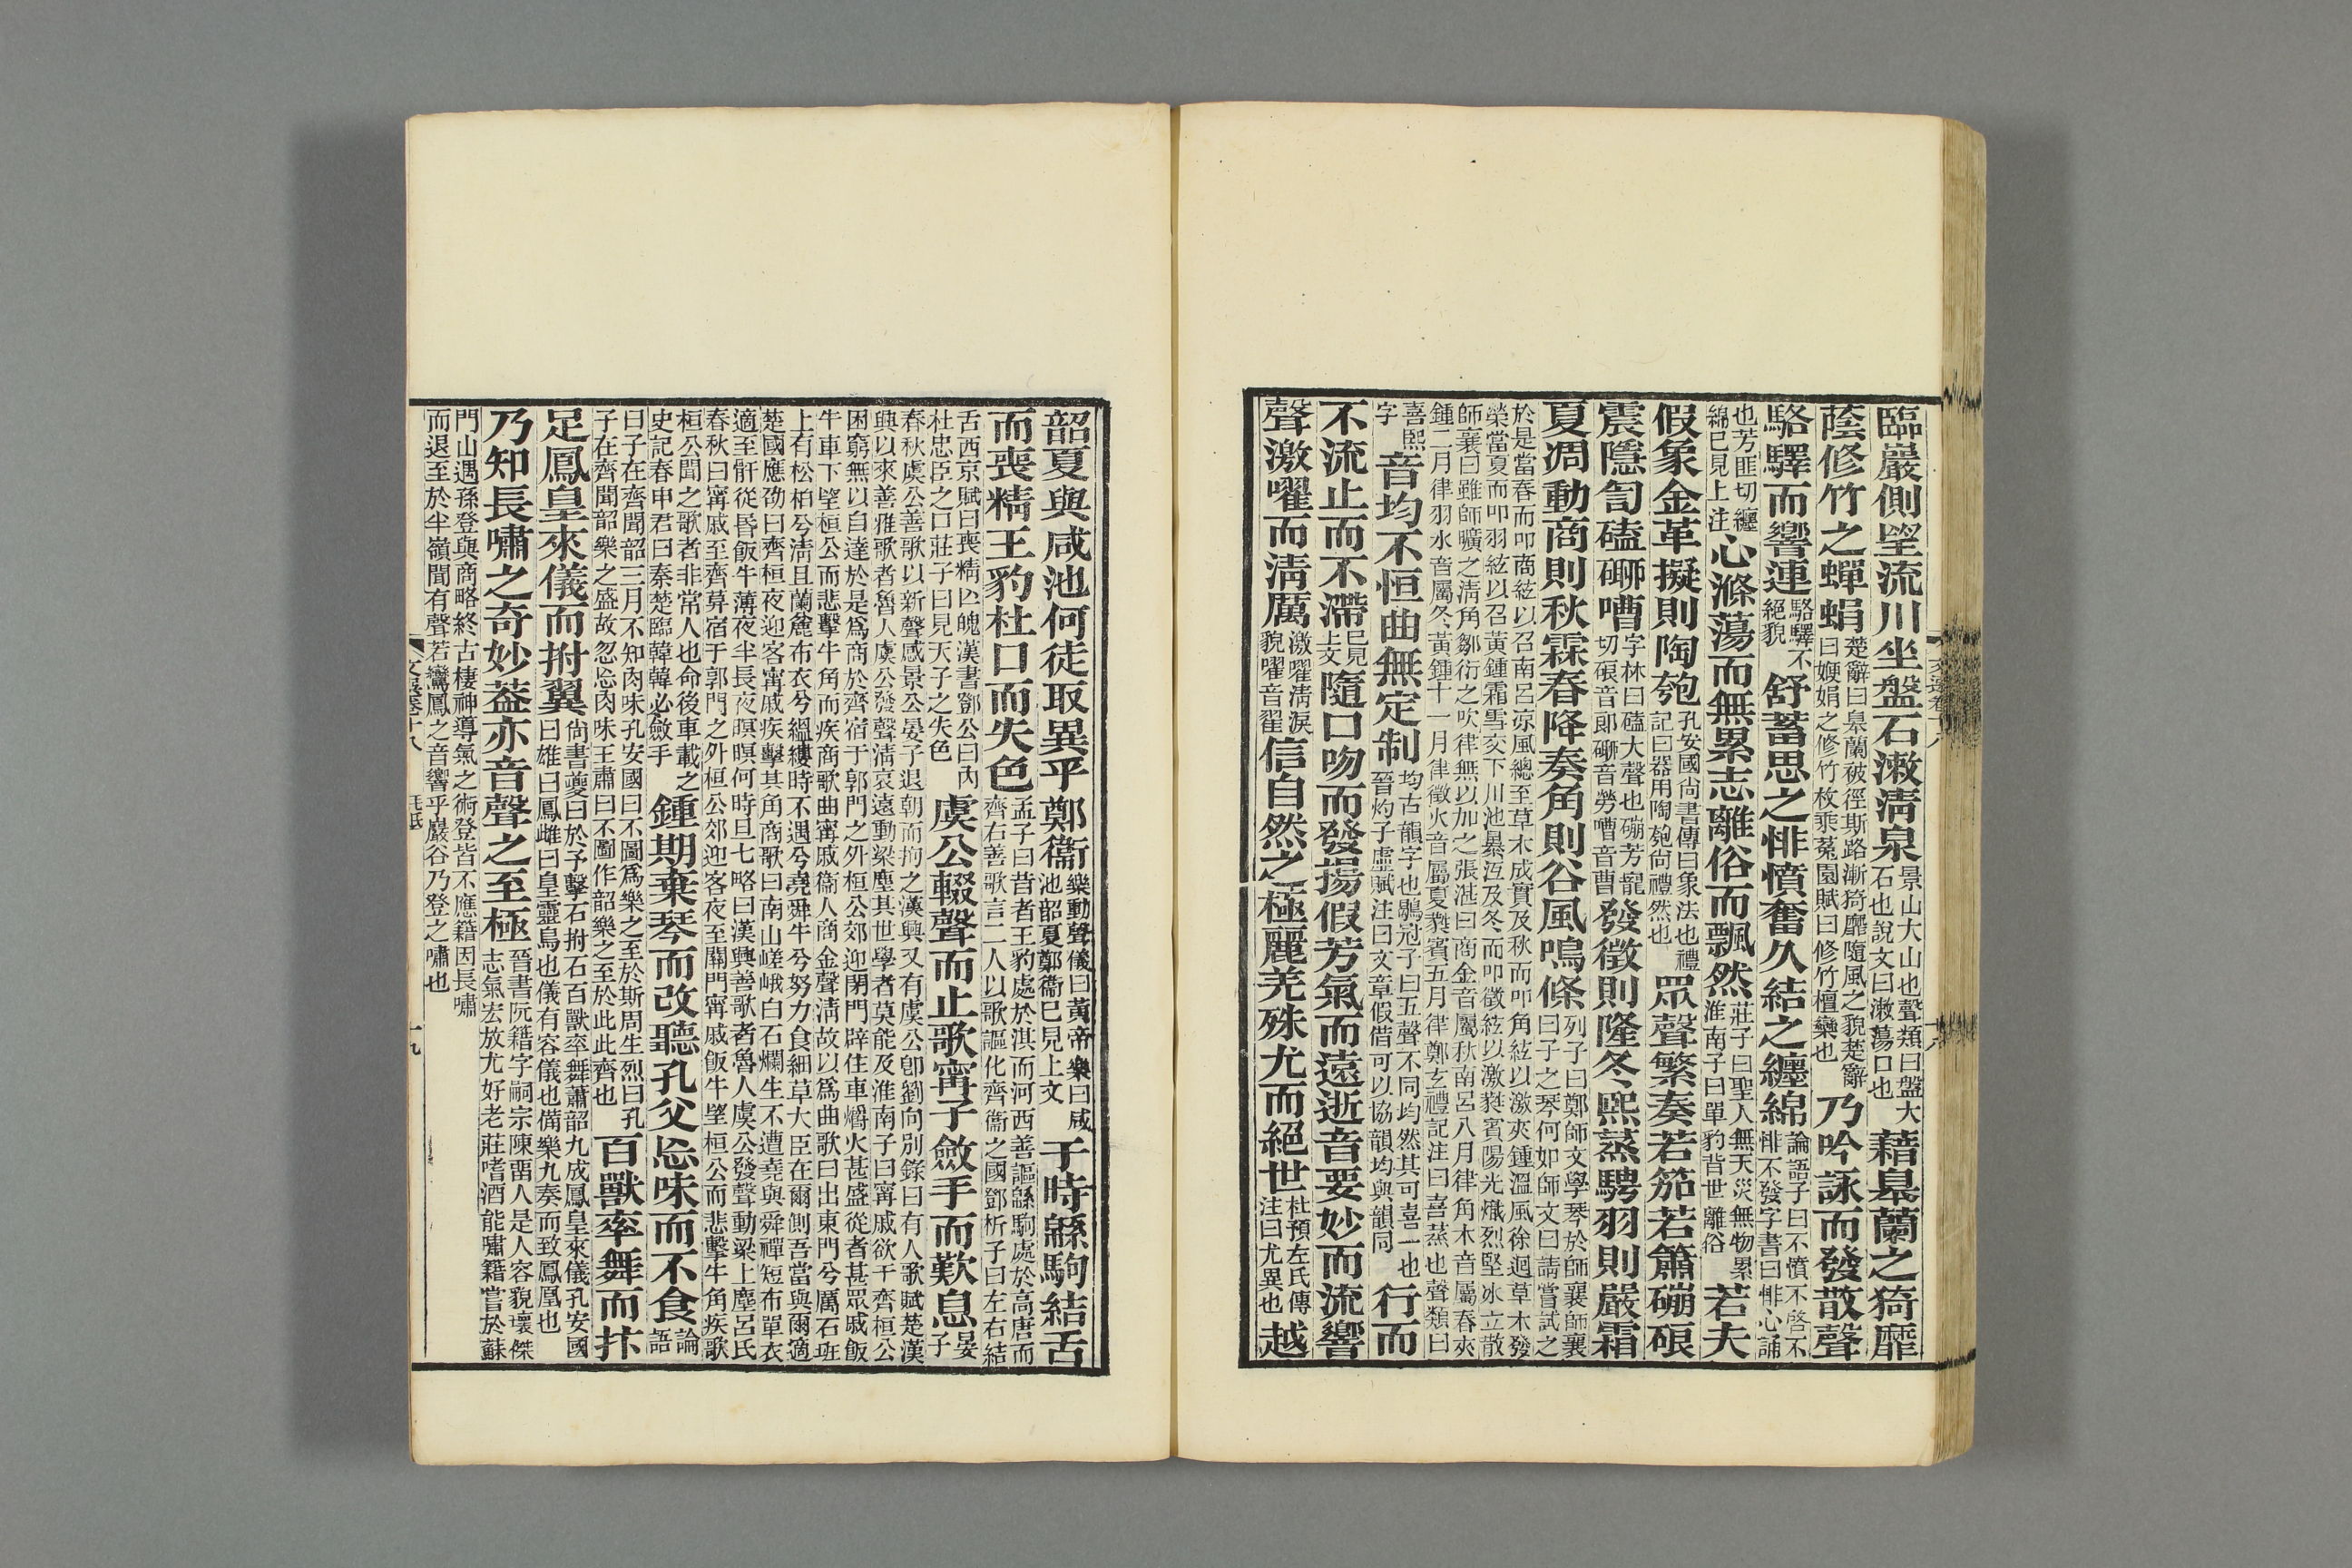 臨巖側望流川坐盤石漱清泉景山大山也聲類曰盤大石也說文曰漱蕩口也藉皐蘭之猗靡
蔭修竹之蟬蜎楚辭曰皐蘭被徑斯路漸猗靡隨風之貌楚辭曰㛹娟之修竹枚乘菟園賦曰修竹檀欒也乃吟詠而發散聲
駱驛而響連駱驛不絕貌舒蓄思之悱憤奮久結之纏綿論語子曰不憤不啓不悱不發字書曰悱心誦
也芳匪切纏綿已見上注心滌蕩而無累志離俗而飄然莊子曰聖人無天災無物累淮南子曰單豹背世離俗若夫
假象金革擬則陶匏孔安國尚書傳曰象法也禮記曰器用陶匏尚禮然也眾聲繁奏若笳若簫磞硠
震隱訇磕磟嘈字林曰磕大聲也磞芳宠切硠音郎磟音勞嘈音曹發徵則隆冬熙蒸騁羽則嚴霜
夏凋動商則秋霖春降奏角則谷風鳴條列子曰鄭師文學琴於師襄師襄曰子之琴何如師文曰請嘗試之
於是當春而叩商絃以召南呂涼風總至草木成實及秋而叩角絃以激夾鍾溫風徐迴草木發榮當夏而叩羽絃以召黃鍾霜雪交下川池暴沍及冬而叩徵絃以激蕤賓陽光熾烈堅冰立散
師襄曰雖師曠之清角鄒衍之吹律無以加之張湛曰商金音屬秋南呂八月律角木音屬春夾鍾二月律羽水音屬冬黃鍾十一月律徵火音屬夏蕤賓五月律鄭玄禮記注曰喜蒸也聲類曰
喜熙字音均不恒曲無定制均古韻字也鶡冠子曰五聲不同均然其可喜一也晉灼子虛賦注曰文章假借可以協韻均與韻同行而
不流止而不滯已見上文隨口吻而發揚假芳氣而遠逝音要妙而流響
聲激嚁而清厲激嚁清淚貌嚁音翟信自然之極麗羌殊尤而絕世杜預左氏傳注曰尤異也越
韶夏與咸池何徒取異乎鄭衞樂動聲儀曰黃帝樂曰咸池韶夏鄭衞已見上文于時緜駒結舌
而喪精王豹杜口而失色孟子曰昔者王豹處於淇而河西善謳緜駒處於高唐而齊右善歌言二人以歌謳化齊衞之國鄧析子曰左右結
舌西京賦曰喪精亡魄漢書鄧公曰內杜忠臣之口莊子曰見天子之失色虞公輟聲而止歌甯子斂手而歎息晏子
春秋虞公善歌以新聲感景公晏子退朝而拘之漢興又有虞公卽劉向別錄曰有人歌賦楚漢興以來善雅歌者魯人虞公發聲清哀遠動梁塵其世學者莫能及淮南子曰甯戚欲干齊桓公
困窮無以自達於是爲商於齊宿于郭門之外桓公郊迎閉門辟住車爝火甚盛從者甚眾戚飯牛車下望桓公而悲擊牛角而疾商歌曲甯戚衞人商金聲清故以爲曲歌曰出東門兮厲石班
上有松柏兮清且蘭麄布衣兮縕縷時不遇兮堯舜牛兮努力食細草大臣在爾側吾當與爾適楚國應劭曰齊桓夜迎客甯戚疾擊其角商歌曰南山嵯峨白石爛生不遭堯與舜禪短布單衣
適至骭從昏飯牛薄夜半長夜暝暝何時旦七略曰漢興善歌者魯人虞公發聲動梁上塵呂氏春秋曰甯戚至齊暮宿于郭門之外桓公郊迎客夜至關門甯戚飯牛望桓公而悲擊牛角疾歌
桓公聞之歌者非常人也命後車載之史記春申君曰秦楚臨韓韓必斂手鍾期棄琴而改聽孔父忘味而不食論語
曰子在齊聞韶三月不知肉味孔安國曰不圖爲樂之至於斯周生烈曰孔子在齊聞韶樂之盛故忽忘肉味王肅曰不圖作韶樂之至於此此齊也百獸率舞而抃
足鳳皇來儀而拊翼尚書夔曰於予擊石拊石百獸率舞蕭韶九成鳳皇來儀孔安國曰雄曰鳳雌曰皇靈鳥也儀有容儀也備樂九奏而致鳳凰也
乃知長嘯之奇妙葢亦音聲之至極晉書阮籍字嗣宗陳畱人是人容貌瓌傑志氣宏放尤好老莊嗜酒能嘯籍嘗於蘇
門山遇孫登與商略終古棲神導氣之術登皆不應籍因長嘯而退至於半嶺聞有聲若鸞鳳之音響乎巖谷乃登之嘯也